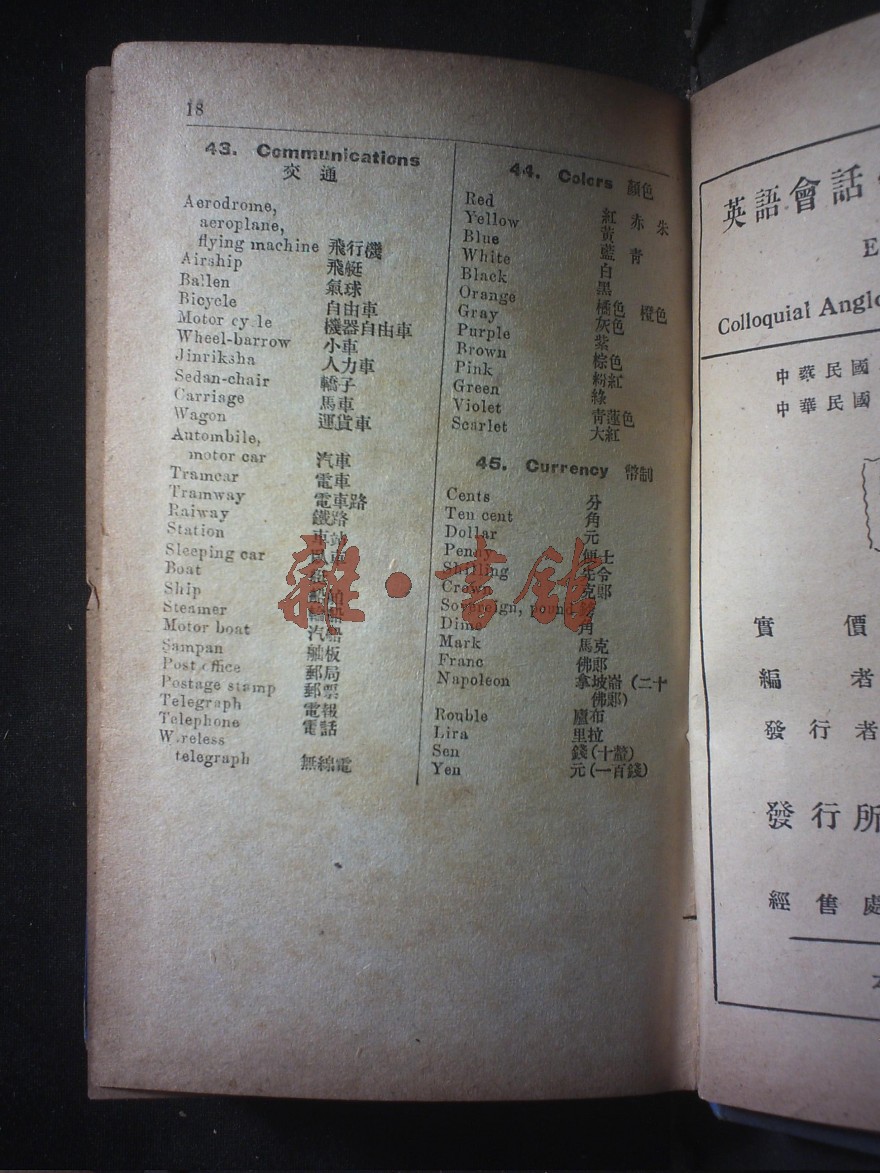 18
43. Communications
交 通
Aerodrome,
aeroplane,
flying machine 飛行機
Airship 飛艇
Ballen 氣球
Bicycle 自由車
Motor cycle 機器自由車
Wheel-barrow 小車
Jinriksha 人力車
Sedan-chair 轎子
Carriage 馬車
Wagon 運貨車
Autombile,
motor car 汽車
Tramcar 電車
Tramway 電車路
Raiway 鐵路
Station 車站
Sleeping car
Boat
Ship
Steamer
Motor boat 汽船
Sampan 舢板
Post office 郵局
Postage stamp 郵票
Telegraph 電報
Telephone 電話
Wireless
telegraph 無線電
44. Colors 顏色
Red 紅 赤 朱
Yellow 黃
Blue 藍 青
White 白
Black 黑
Orange 橘色 橙色
Gray 灰色
Purple 紫
Brown 棕色
Pink 粉紅
Green 綠
Violet 青蓮色
Scarlet 大紅
45. Currency 幣制
Cents 分
Ten cent 角
Dollar 元
Penny 便士
Shilling 先令
Crown 克郎
Sovereign, pound
Dime 角
Mark 馬克
Franc 佛郎
Napoleon 拿坡崙 (二十
佛郎)
Rouble 盧布
Lira 里拉
Sen 錢(十釐)
Yen 元(一百錢)
雜·書館
英語會話
E
Colloquial Anglo
中華民國
中華民國
實 價
編 者
發行者
發行所
經售處